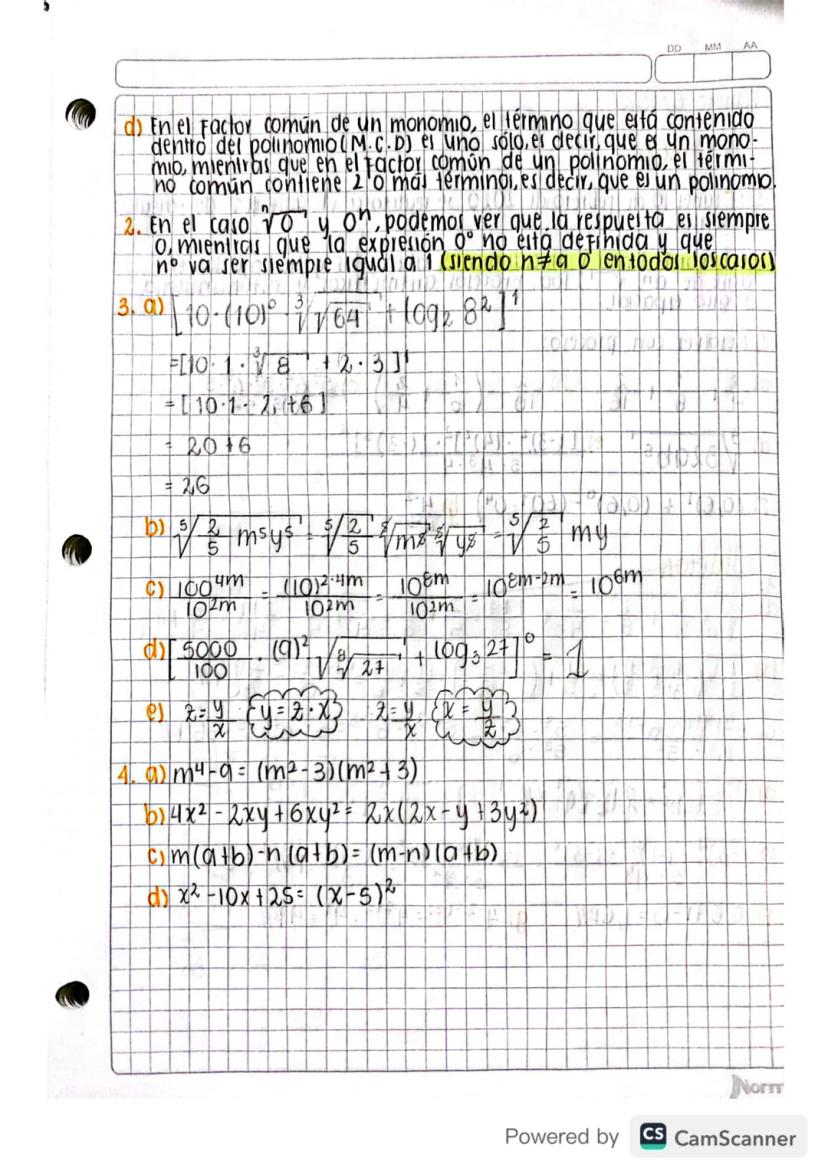 DD MM AA
d) En el Factor común de un monomio, el término que está contenido
dentro del polinomio (M.C.D) es uno sólo, es decir, que es un mono-
mio, mientras que en el Factor común de un polinomio, el térmi-
no común contiene 2 o más términos, es decir, que es un polinomio.
2. En el caso ⁿ√0 y 0ⁿ, podemos ver que la respuesta es siempre
0, mientras que la expresión 0⁰ no está definida y que
n⁰ va ser siempre igual a 1 (siendo n≠a 0 en todos los casos)
3. a) [10·(10)⁰·³√√64 + log₂ 8²]¹
=[10·1·³√8 + 2·3]¹
=[10·1·2,+6]
= 20+6
= 26
b) ⁵√(2/5 m⁵y⁵) = ⁵√(2/5) ⁵√m⁵ ⁵√y⁵ = ⁵√(2/5) my
c) 100⁴ᵐ/10²ᵐ = (10)²·⁴ᵐ/10²ᵐ = 10⁸ᵐ/10²ᵐ = 10⁸ᵐ⁻²ᵐ = 10⁶ᵐ
d) [5000/100 · (9)² √(⁸√27) + log₃ 27]⁰ = 1
e) z=y/x {y=z·x} z=y/x {x=y/z}
4. a) m⁴-9= (m²-3)(m²+3)
b) 4x²-2xy+6xy²= 2x(2x-y+3y²)
c) m(a+b)-n(a+b)= (m-n)(a+b)
d) x²-10x+25= (x-5)²
Norm
Powered by CS CamScanner